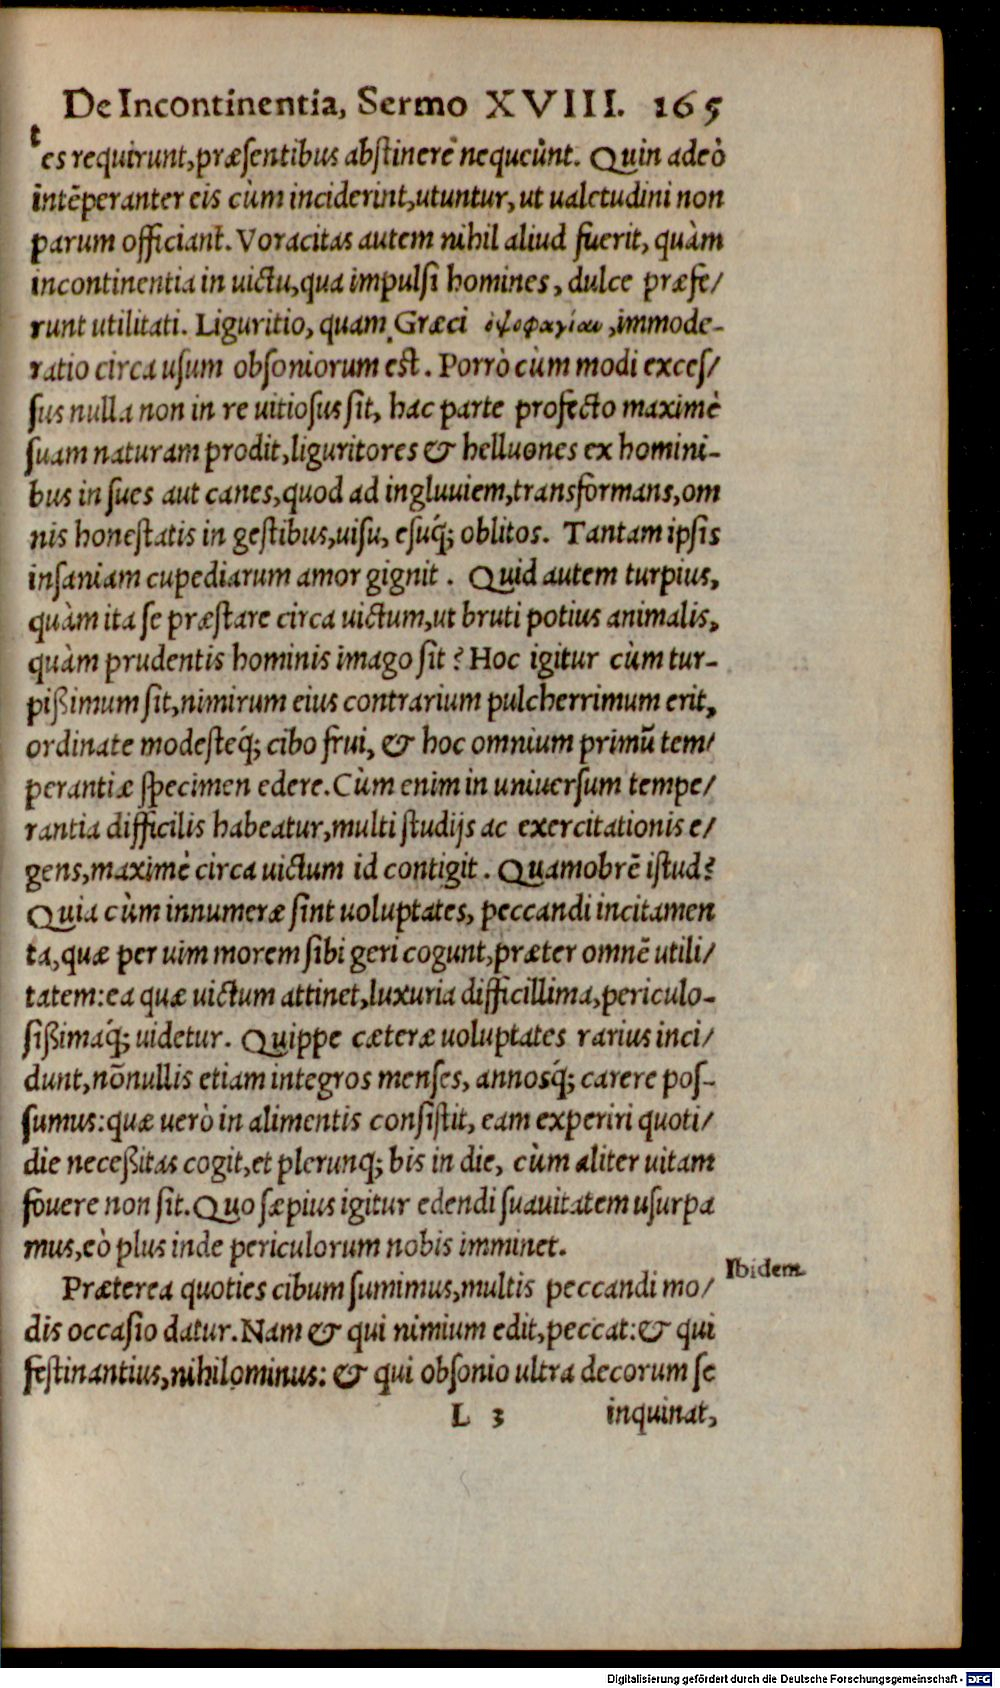 De Incontinentia, Sermo XVIII. 165
tes requirunt, præsentibus abstinere nequeunt. Quin adeò
intēperanter eis cùm inciderint, utuntur, ut ualetudini non
parum officiant. Voracitas autem nihil aliud fuerit, quàm
incontinentia in uictu, qua impulsi homines, dulce præfe/
runt utilitati. Liguritio, quam Græci ὀψοφαγίαν, immode-
ratio circa usum obsoniorum est. Porrò cùm modi exces/
sus nulla non in re uitiosus sit, hac parte profecto maximè
suam naturam prodit, liguritores & helluones ex homini-
bus in sues aut canes, quod ad ingluuiem, transformans, om
nis honestatis in gestibus, uisu, esuq́; oblitos. Tantam ipsis
insaniam cupediarum amor gignit. Quid autem turpius,
quàm ita se præstare circa uictum, ut bruti potius animalis,
quàm prudentis hominis imago sit? Hoc igitur cùm tur-
pißimum sit, nimirum eius contrarium pulcherrimum erit,
ordinate modesteq́; cibo frui, & hoc omnium primū tem/
perantiæ specimen edere. Cùm enim in uniuersum tempe/
rantia difficilis habeatur, multi studijs ac exercitationis e/
gens, maximè circa uictum id contigit. Quamobrē istud?
Quia cùm innumeræ sint uoluptates, peccandi incitamen
ta, quæ per uim morem sibi geri cogunt, præter omnē utili/
tatem: ea quæ uictum attinet, luxuria difficillima, periculo-
sißimaq́; uidetur. Quippe cæteræ uoluptates rarius inci/
dunt, nōnullis etiam integros menses, annosq́; carere pos-
sumus: quæ uerò in alimentis consistit, eam experiri quoti/
die neceßitas cogit, et plerunq; bis in die, cùm aliter uitam
fouere non sit. Quo sæpius igitur edendi suauitatem usurpa
mus, eò plus inde periculorum nobis imminet.
Ibidem.
Præterea quoties cibum sumimus, multis peccandi mo/
dis occasio datur. Nam & qui nimium edit, peccat: & qui
festinantius, nihilominus: & qui obsonio ultra decorum se
L 3 inquinat,
Digitalisierung gefördert durch die Deutsche Forschungsgemeinschaft - DFG